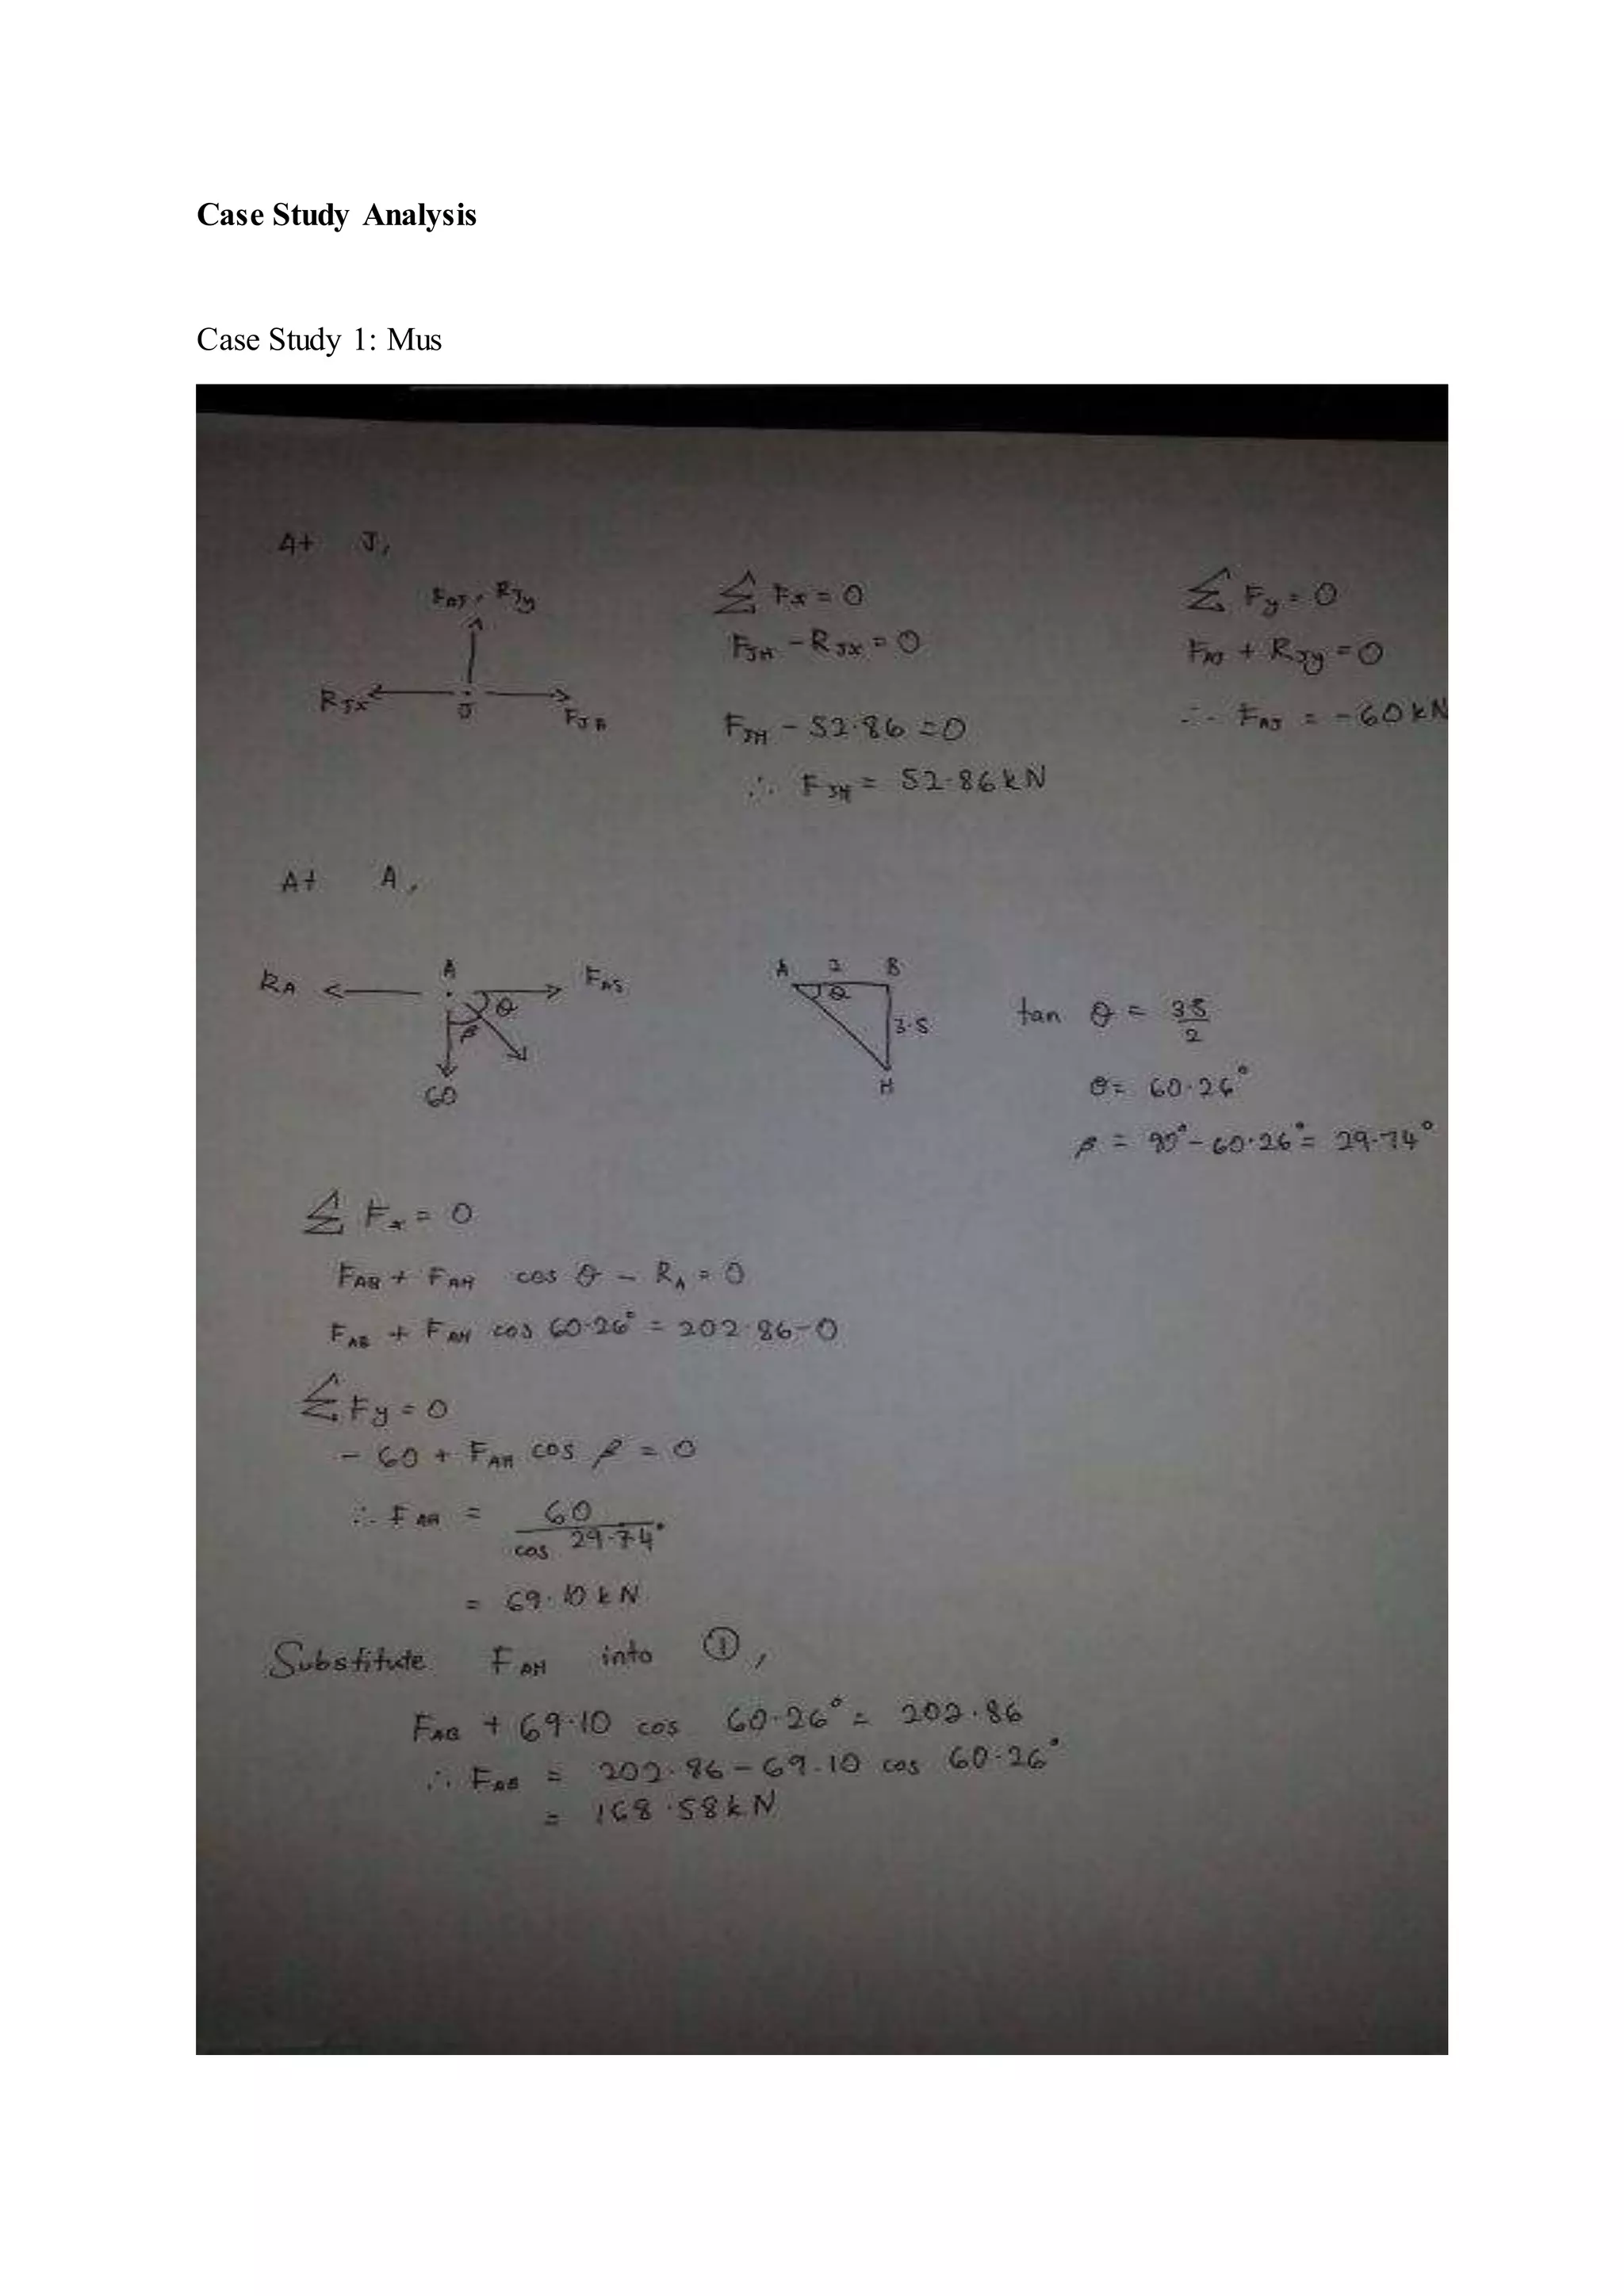 Case Study Analysis
Case Study 1: Mus
At J,
FAJ, RJy
RJx
J
FJH
Σ Fx = 0
FJH - RJx = 0
FJH - 52.86 = 0
∴ FJH = 52.86kN
Σ Fy = 0
FAJ + RJy = 0
∴ FAJ = -60kN
At A,
RA
A
θ
β
60
A 2 B
θ
3.5
H
tan θ = 3.5/2
θ = 60.26°
β = 90° - 60.26° = 29.74°
Σ Fx = 0
FAB + FAH cos θ - RA = 0
FAB + FAH cos 60.26° = 202.86-0
Σ Fy = 0
- 60 + FAH cos β = 0
∴ FAH = 60 / cos 29.74°
= 69.10 kN
Substitute FAH into ①,
FAB + 69.10 cos 60.26° = 202.86
∴ FAB = 202.86 - 69.10 cos 60.26°
= 168.58kN